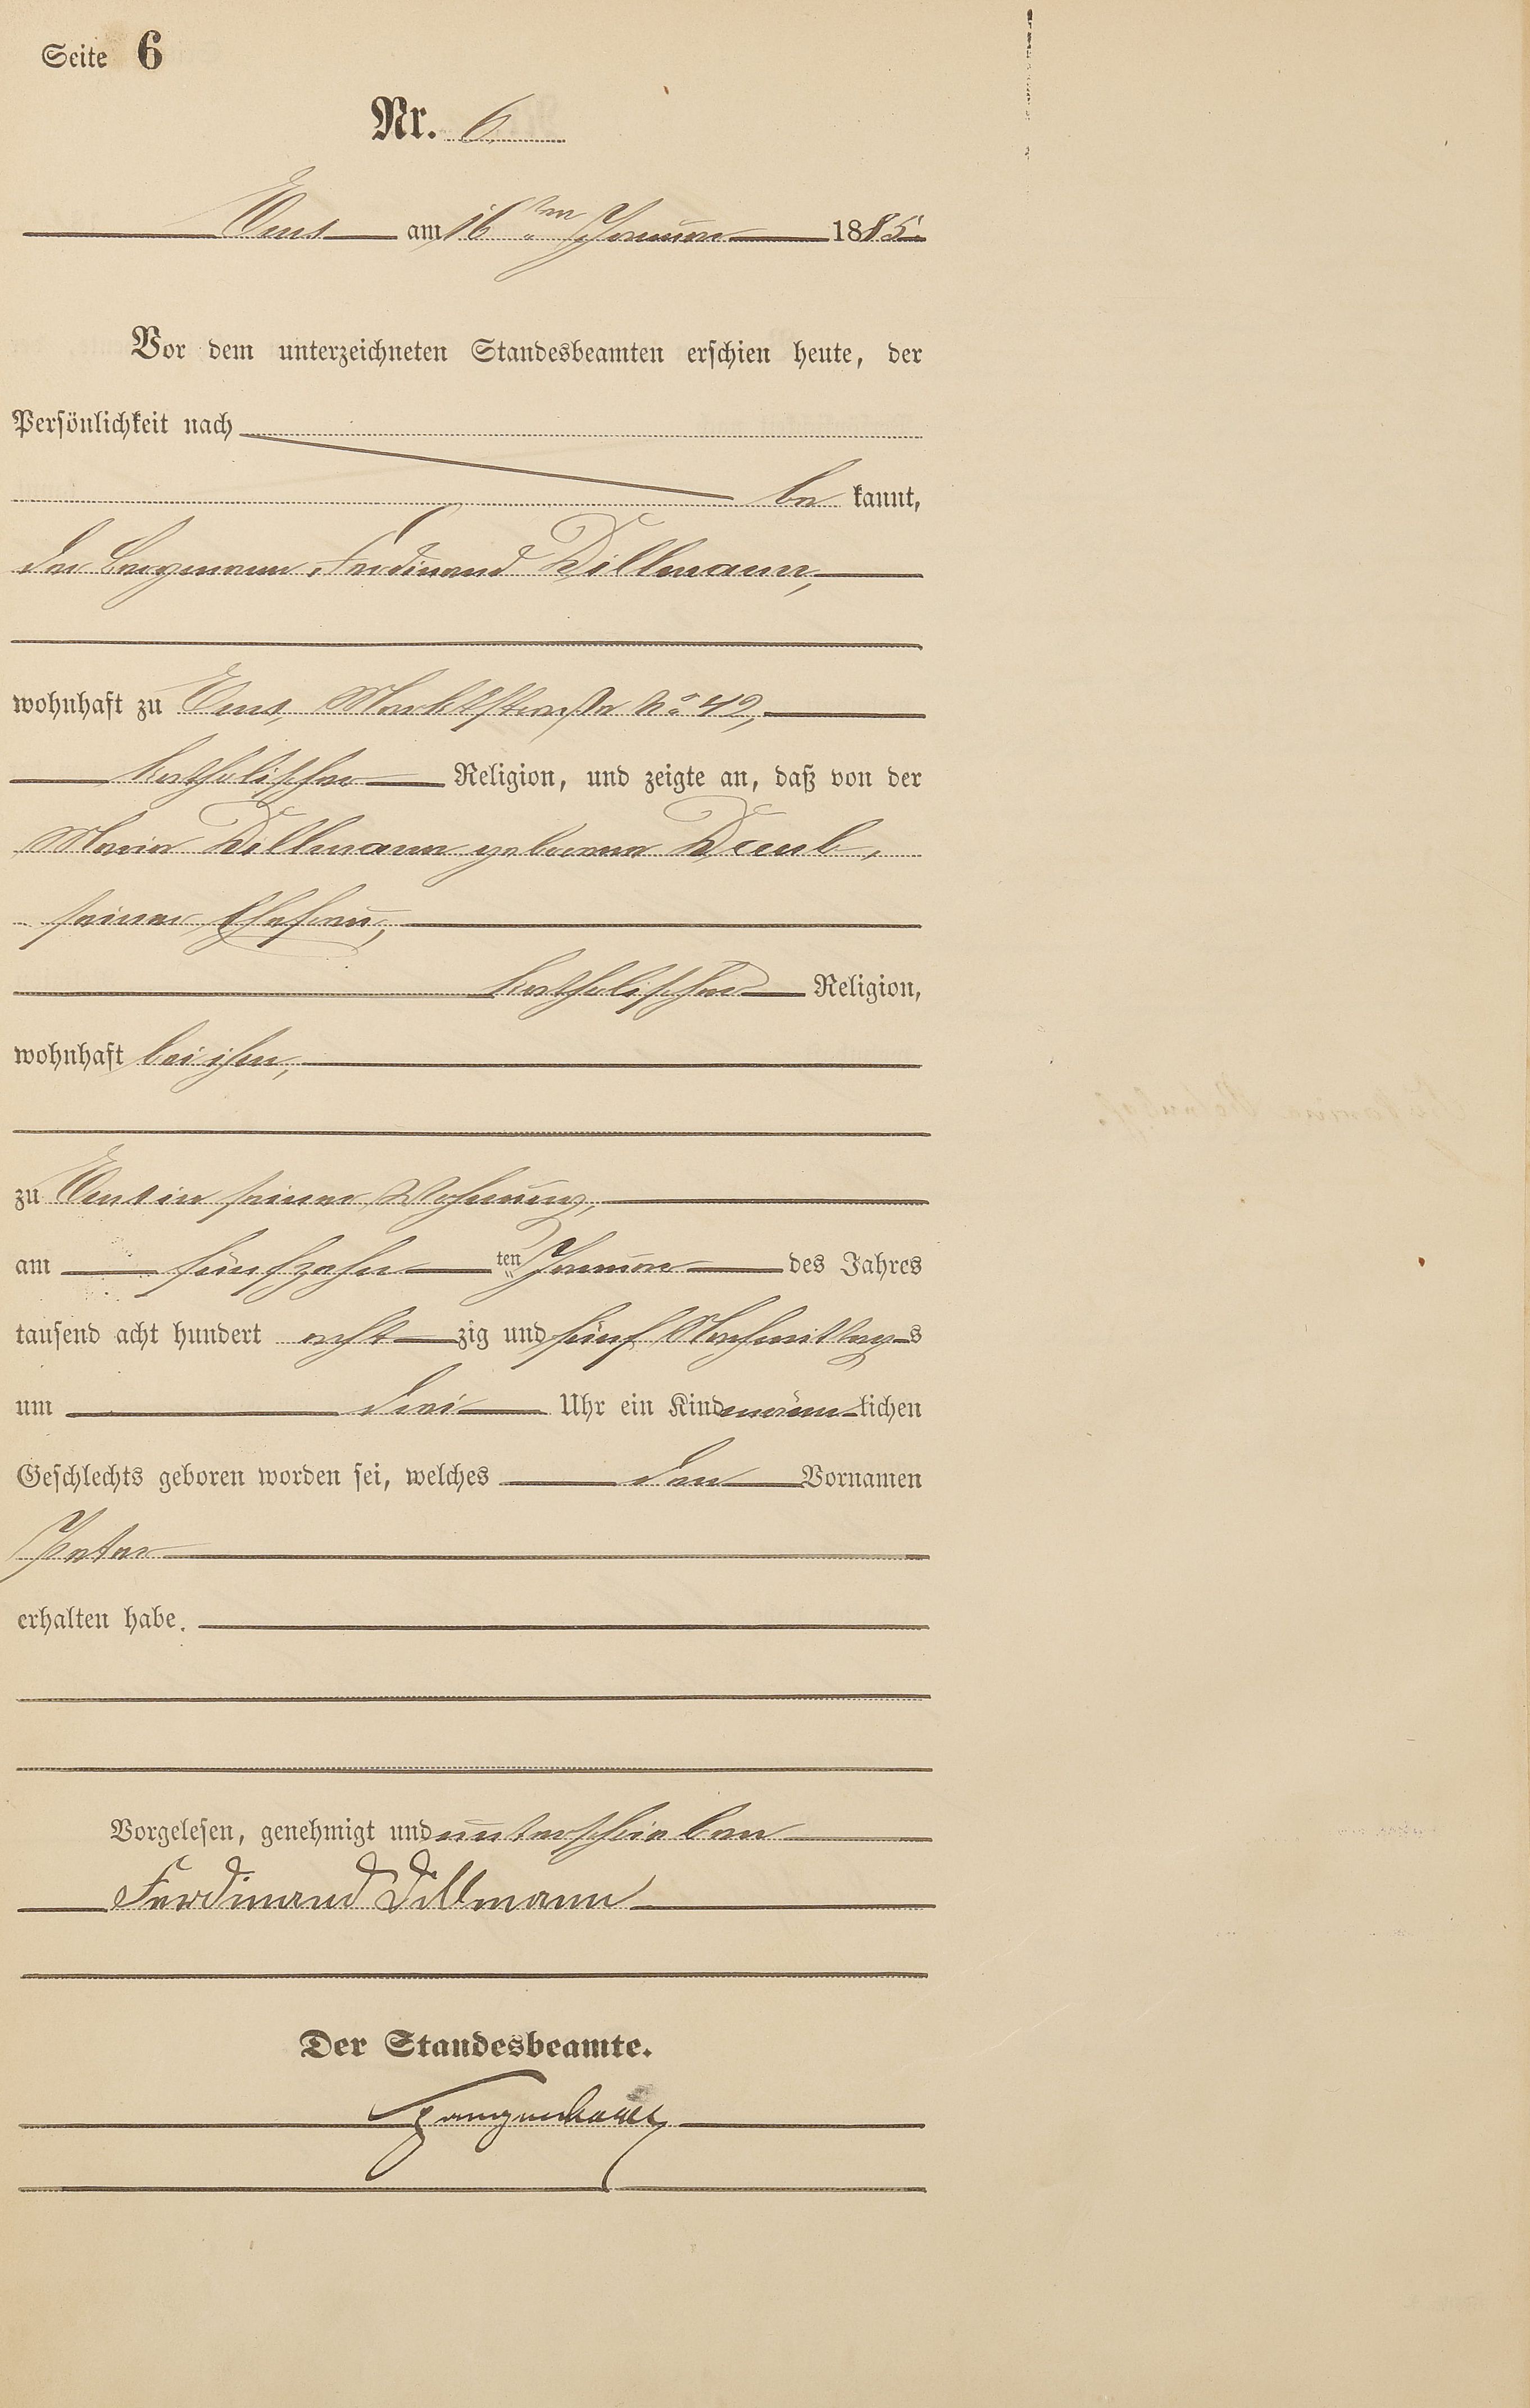 Seite 6
Nr. 6
Ems am 16ten Januar 1885.
Vor dem unterzeichneten Standesbeamten erschien heute, der
Persönlichkeit nach
be kannt,
der Bergmann Ferdinand Dillmann,
wohnhaft zu Ems, Marktstraße No 42,
katholischer Religion, und zeigte an, daß von der
Maria Dillmann geborene Daub,
seiner Ehefrau,
katholischer Religion,
wohnhaft bei ihm,
zu Ems in seiner Wohnung,
am fünfzehn ten Januar des Jahres
tausend acht hundert acht zig und fünf Nachmittags
um drei Uhr ein Kind männlichen
Geschlechts geboren worden sei, welches den Vornamen
Peter
erhalten habe.
Vorgelesen, genehmigt und unterschrieben
Ferdinand Dillmann
Der Standesbeamte.